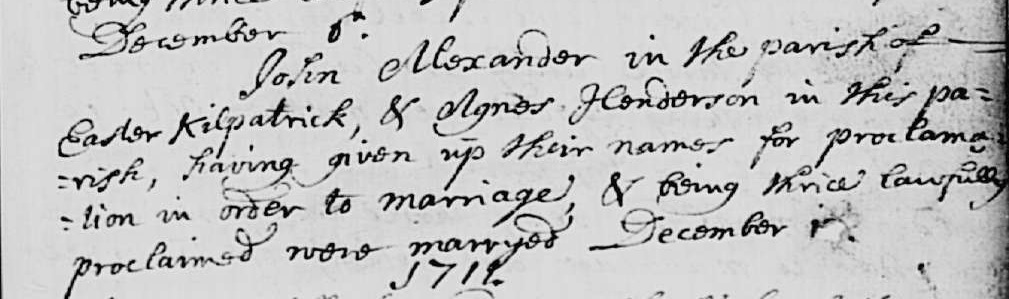 December 6.
John Alexander in the parish of
Easter Kilpatrick, & Agnes Henderson in this pa=
=rish, having given up their names for proclama=
=tion in order to marriage, & being thrice lawfully
proclaimed were marryed December
1711.